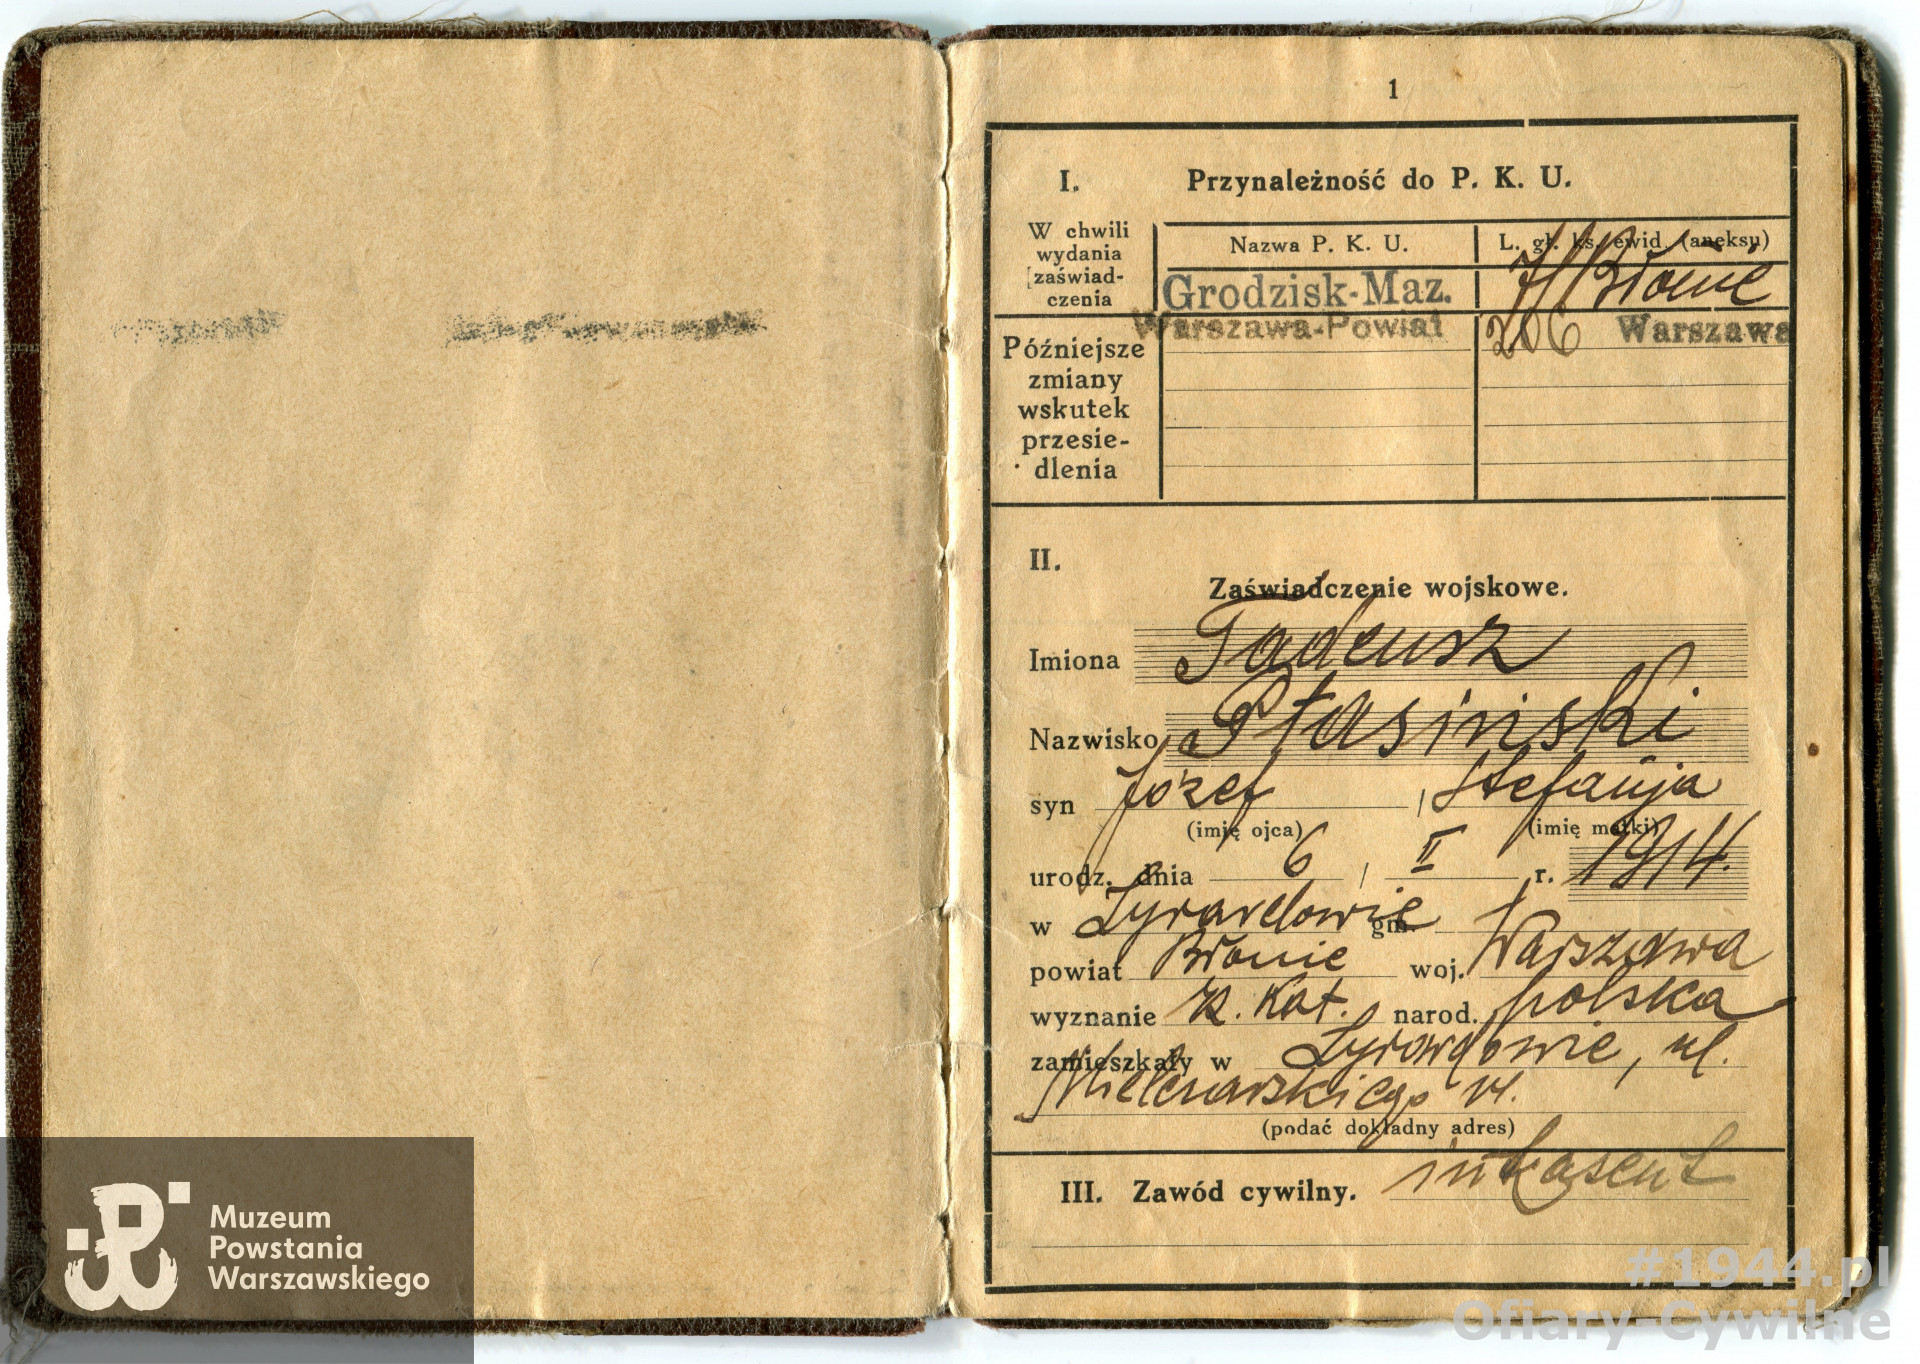 1
I. Przynależność do P. K. U.
W chwili
wydania
zaświad-
czenia
Nazwa P. K. U.
L. gł. ks. ewid. (aneksu)
Grodzisk-Maz.
7/Błonie
Warszawa-Powiat
206 Warszawa
Późniejsze
zmiany
wskutek
przesie-
dlenia
II.
Zaświadczenie wojskowe.
Imiona Tadeusz
Nazwisko Ptasiński
syn Józef, Stefanja
(imię ojca) (imię matki)
urodz. dnia 6 / II r. 1914.
w Żyrardowie gm.
powiat Błonie woj. Warszawa
wyznanie rz. kat. narod. polska
zamieszkały w Żyrardowie, ul.
(podać dokładny adres)
III. Zawód cywilny. inkasent
Muzeum
Powstania
Warszawskiego
#1944.pl
Ofiary-Cywilne